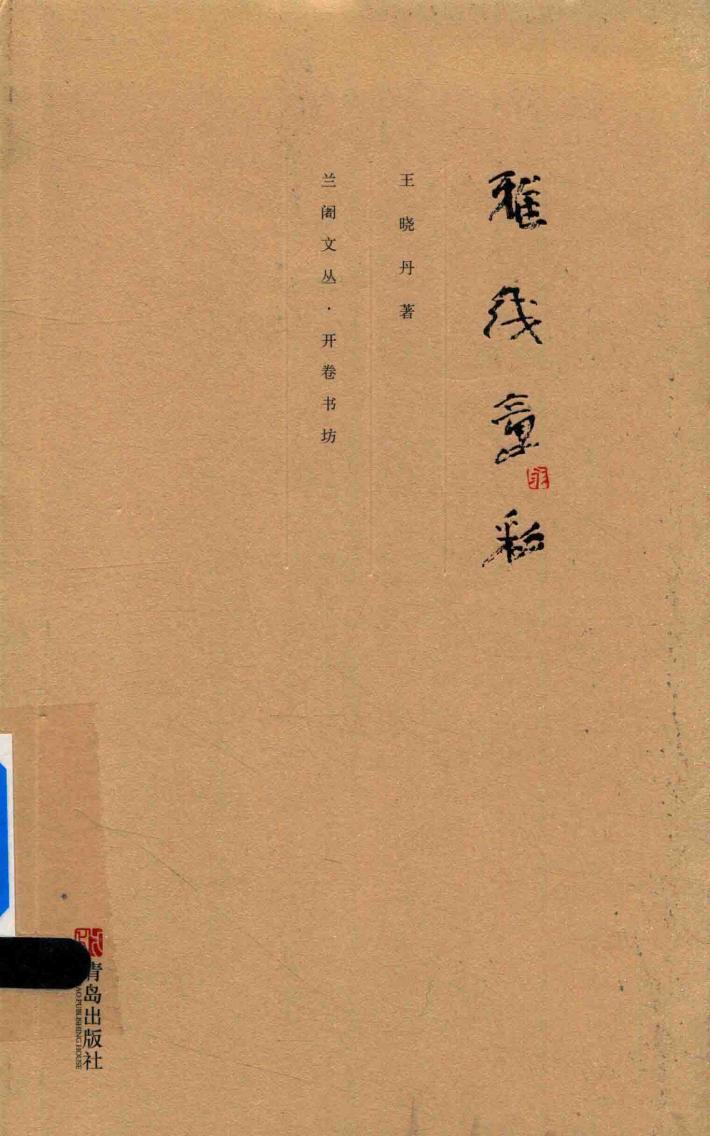 雅线童彩
王晓丹 著
兰阁文丛·开卷书坊
青岛出版社
PUBLISHING HOUSE